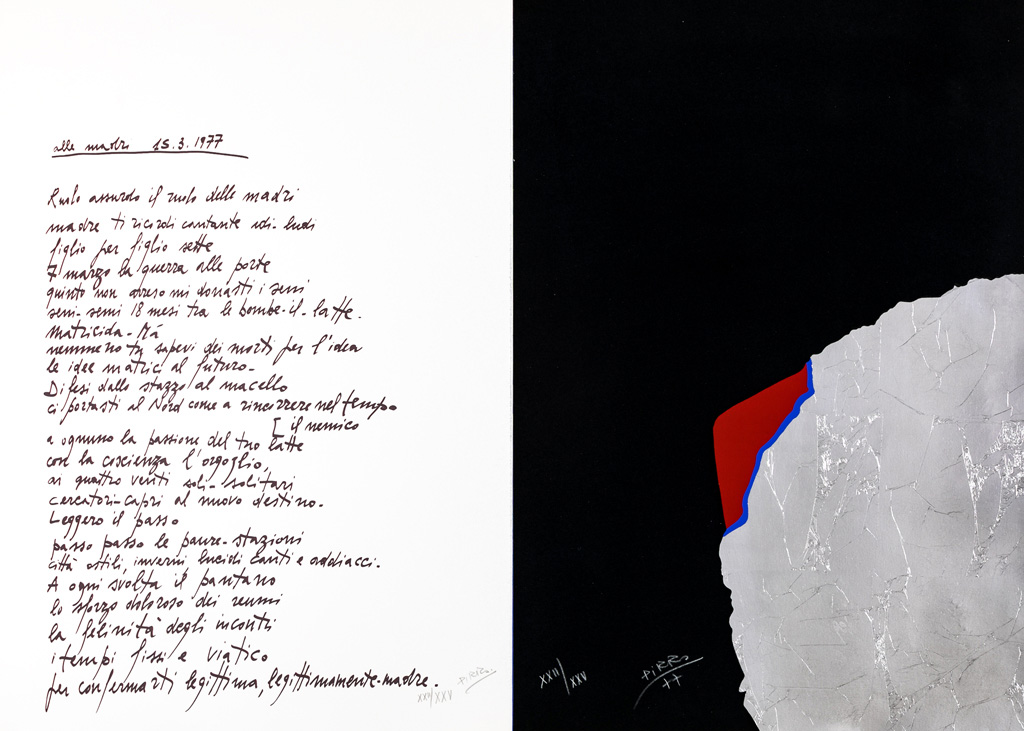 alle madri 15.3.1977
Ruolo assurdo il ruolo delle madri
madre ti ricordi cantante udi-ludi
figlio per figlio sette
7 marzo la guerra alle porte
quinto non atteso mi donasti i seni
seni-semi 18 mesi tra le bombe-il-latte.
matricida-Má
nemmeno tu sapevi dei morti per l'idea
le idee matrici al futuro-
Difesi dallo stazzo al macello
ci portasti al Nord come a rincorrere nel tempo
[ il nemico
a ognuno la passione del tuo latte
così la coscienza l'orgoglio,
ai quattro venti soli-solitari
cercatori-capri al nuovo destino.
Leggero il passo
passo passo le paure-stazioni
città ostili, inverni lucidi canti e addiacci.
A ogni svolta il pantano
lo sforzo doloroso dei reumi
la felinità degli incontri
i tempi fissi e viatico
per confermarti legittima, legittimamente-madre.
XXII/XXV PiRRo
XXII/XXV PiRRo
77